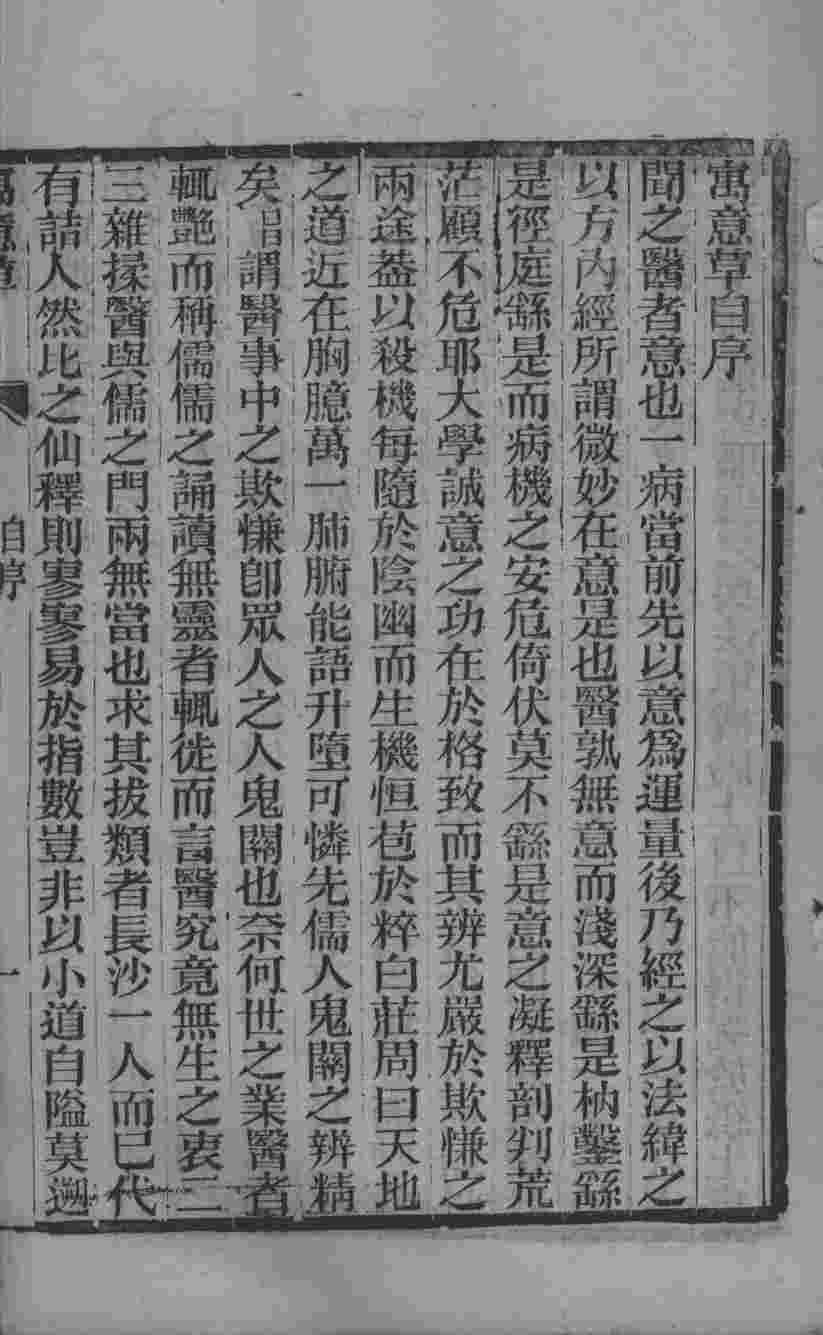 寓意草自序
聞之醫者意也一病當前先以意爲運量後乃經之以法緯之
以方內經所謂微妙在意是也醫孰無意而淺深繇是枘鑿繇
是徑庭繇是而病機之安危倚伏莫不繇是意之凝釋剖判荒
茫顧不危耶大學誠意之功在於格致而其辨尤嚴於欺慊之
兩途葢以殺機每隨於陰幽而生機恒苞於粹白莊周曰天地
之道近在胸臆萬一肺腑能語升墮可憐先儒人鬼關之辨精
矣昌謂醫事中之欺慊卽眾人之人鬼關也奈何世之業醫者
輒艷而稱儒儒之誦讀無靈者輒徙而言醫究竟無生之衷二
三雜揉醫與儒之門兩無當也求其拔類者長沙一人而已代
有詰人然比之仙釋則寥寥易於指數豈非以小道自隘莫遡
寓意草
自序
一